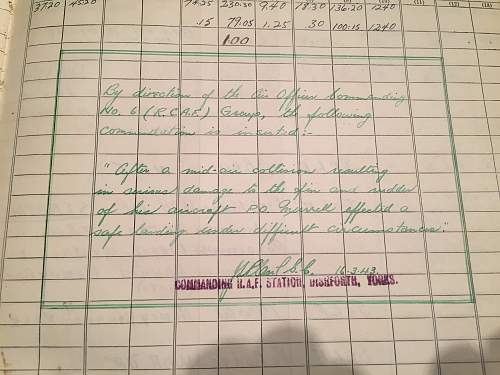 3720 4520 74.25 230.30 9.40 18.30 136.20 1240 (11) (12) (13)
.15 79.05 1.25 .30 100.15 1240
100
By direction of the Air Officer Commanding
No. 6 (R.C.A.F.) Group, the following
commendation is inserted:-
"After a mid-air collision resulting
in serious damage to the fin and rudder
of his aircraft P.O. effected a
safe landing under difficult circumstances".
16-3-43.
COMMANDING R.A.F. STATION, DISHFORTH, YORKS.